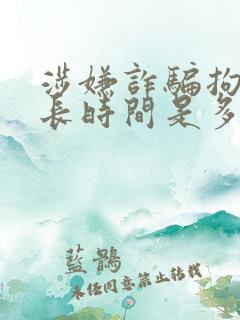 涉嫌詐騙拘
長時間是多
藍鶻
未任同意禁止轉載